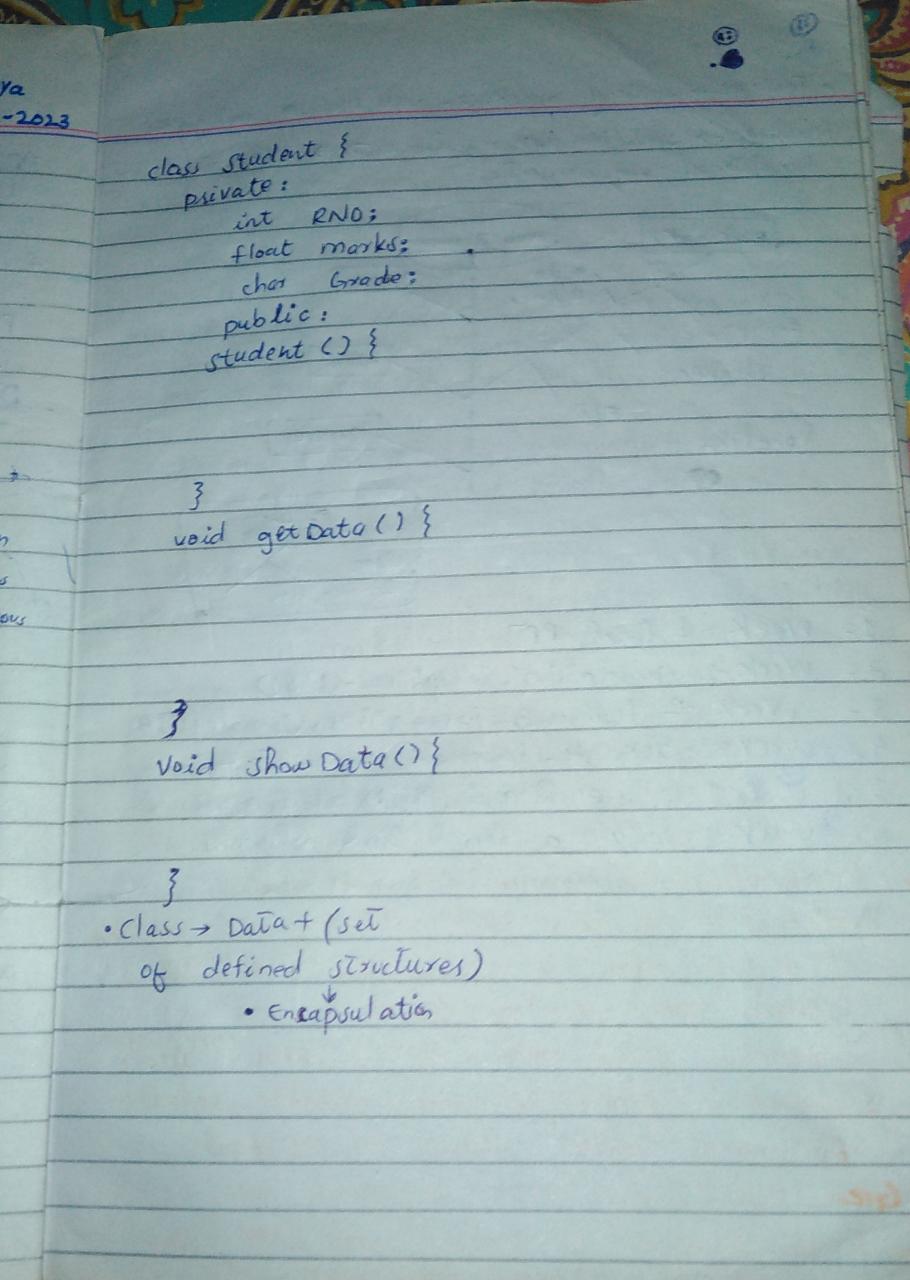 ya
-2023
class Student {
private:
int RNO;
float marks;
char Grade;
public:
student () {
}
void getData () {
}
void showData () {
}
• Class → Data + (set
of defined structures)
↓
• Encapsulation